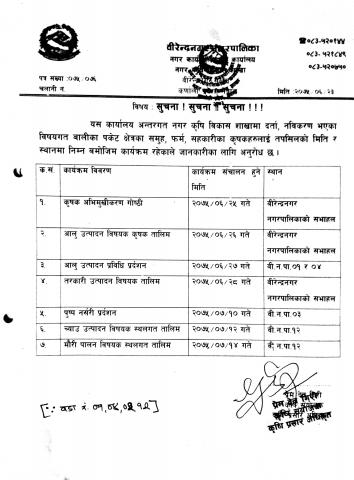 वीरेन्द्रनगर नगरपालिका
नगर कार्यपालिकाको कार्यालय
☎०८३-५२१९४४
०८३-५२१८५९
०८३-५२०४५०
पत्र संख्या :०७५/०७६
चलानी नं.
मिति :२०७५/०६/२३
विषय : सुचना ! सुचना ! सुचना ! ! !
यस कार्यालय अन्तरगत नगर कृषि विकास शाखामा दर्ता, नविकरण भएका
विषयगत बालीका पकेट क्षेत्रका समुह, फर्म, सहकारीका कृषकहरुलाई तपसिलको मिति र
स्थानमा निम्न बमोजिम कार्यक्रम रहेकाले जानकारीका लागि अनुरोध छ ।
क.सं. कार्यक्रम विवरण कार्यक्रम संचालन हुने मिति स्थान
१. कृषक अभिमुखीकरण गोष्ठी २०७५/०६/२५ गते वीरेन्द्रनगर नगरपालिकाको सभाहल
२. आलु उत्पादन विषयक कृषक तालिम २०७५/०६/२६ गते वीरेन्द्रनगर नगरपालिकाको सभाहल
३. आलु उत्पादन प्रविधि प्रर्दशन २०७५/०६/२७ गते वी.न.पा.०१ र ०४
४ तरकारी उत्पादन विषयक तालिम २०७५/०६/२८ गते वीरेन्द्रनगर नगरपालिकाको सभाहल
५. पुष्प नर्सरी प्रर्दशन २०७५/०७/१० गते वी.न.पा.०३
६. च्याउ उत्पादन विषयक स्थलगत तालिम २०७५/०७/१२ गते वी.न.पा.१२
७. मौरी पालन विषयक स्थलगत तालिम २०७५/०७/१४ गते वी.न.पा.१२
कृषि प्रसार अधिकृत